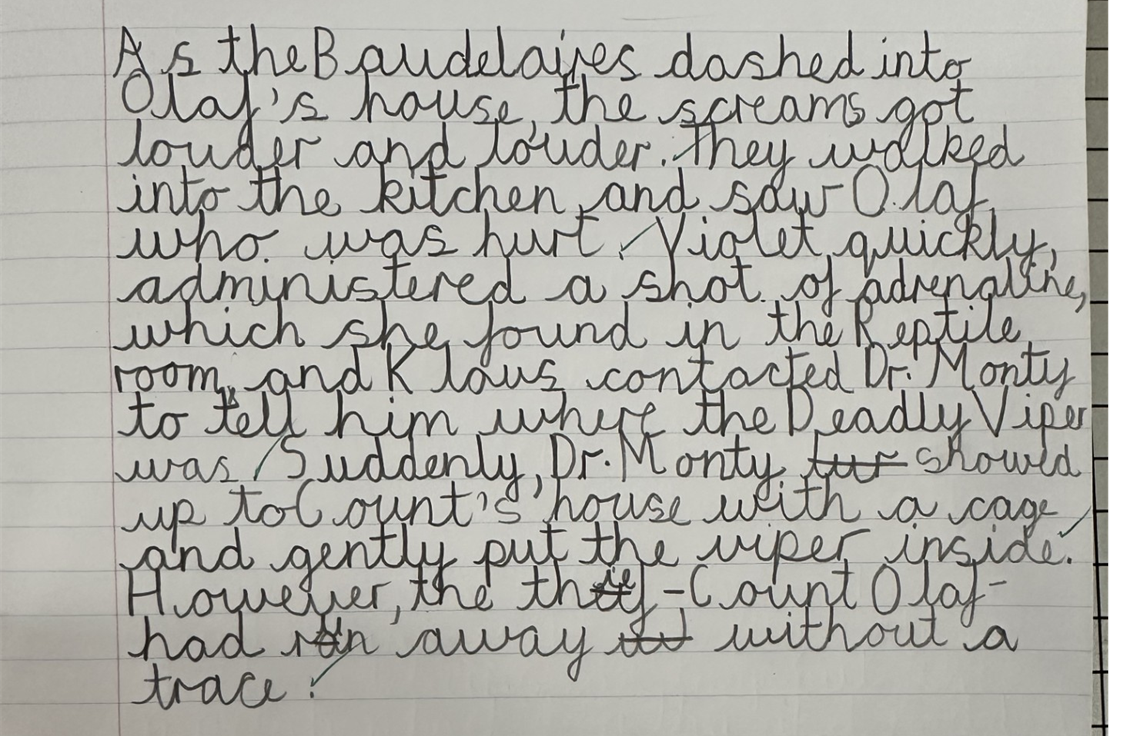 As the Baudelaires dashed into
Olaf's house, the screams got
louder and louder. They walked
into the kitchen, and saw Olaf,
who was hurt. Violet quickly,
administered a shot of adrenaline,
which she found in the Reptile
room, and Klaus contacted Dr. Monty
to tell him where the Deadly Viper
was. Suddenly, Dr. Monty showed
up to Count's house with a cage
and gently put the viper inside.
However, the thief - Count Olaf -
had ran away without a
trace.